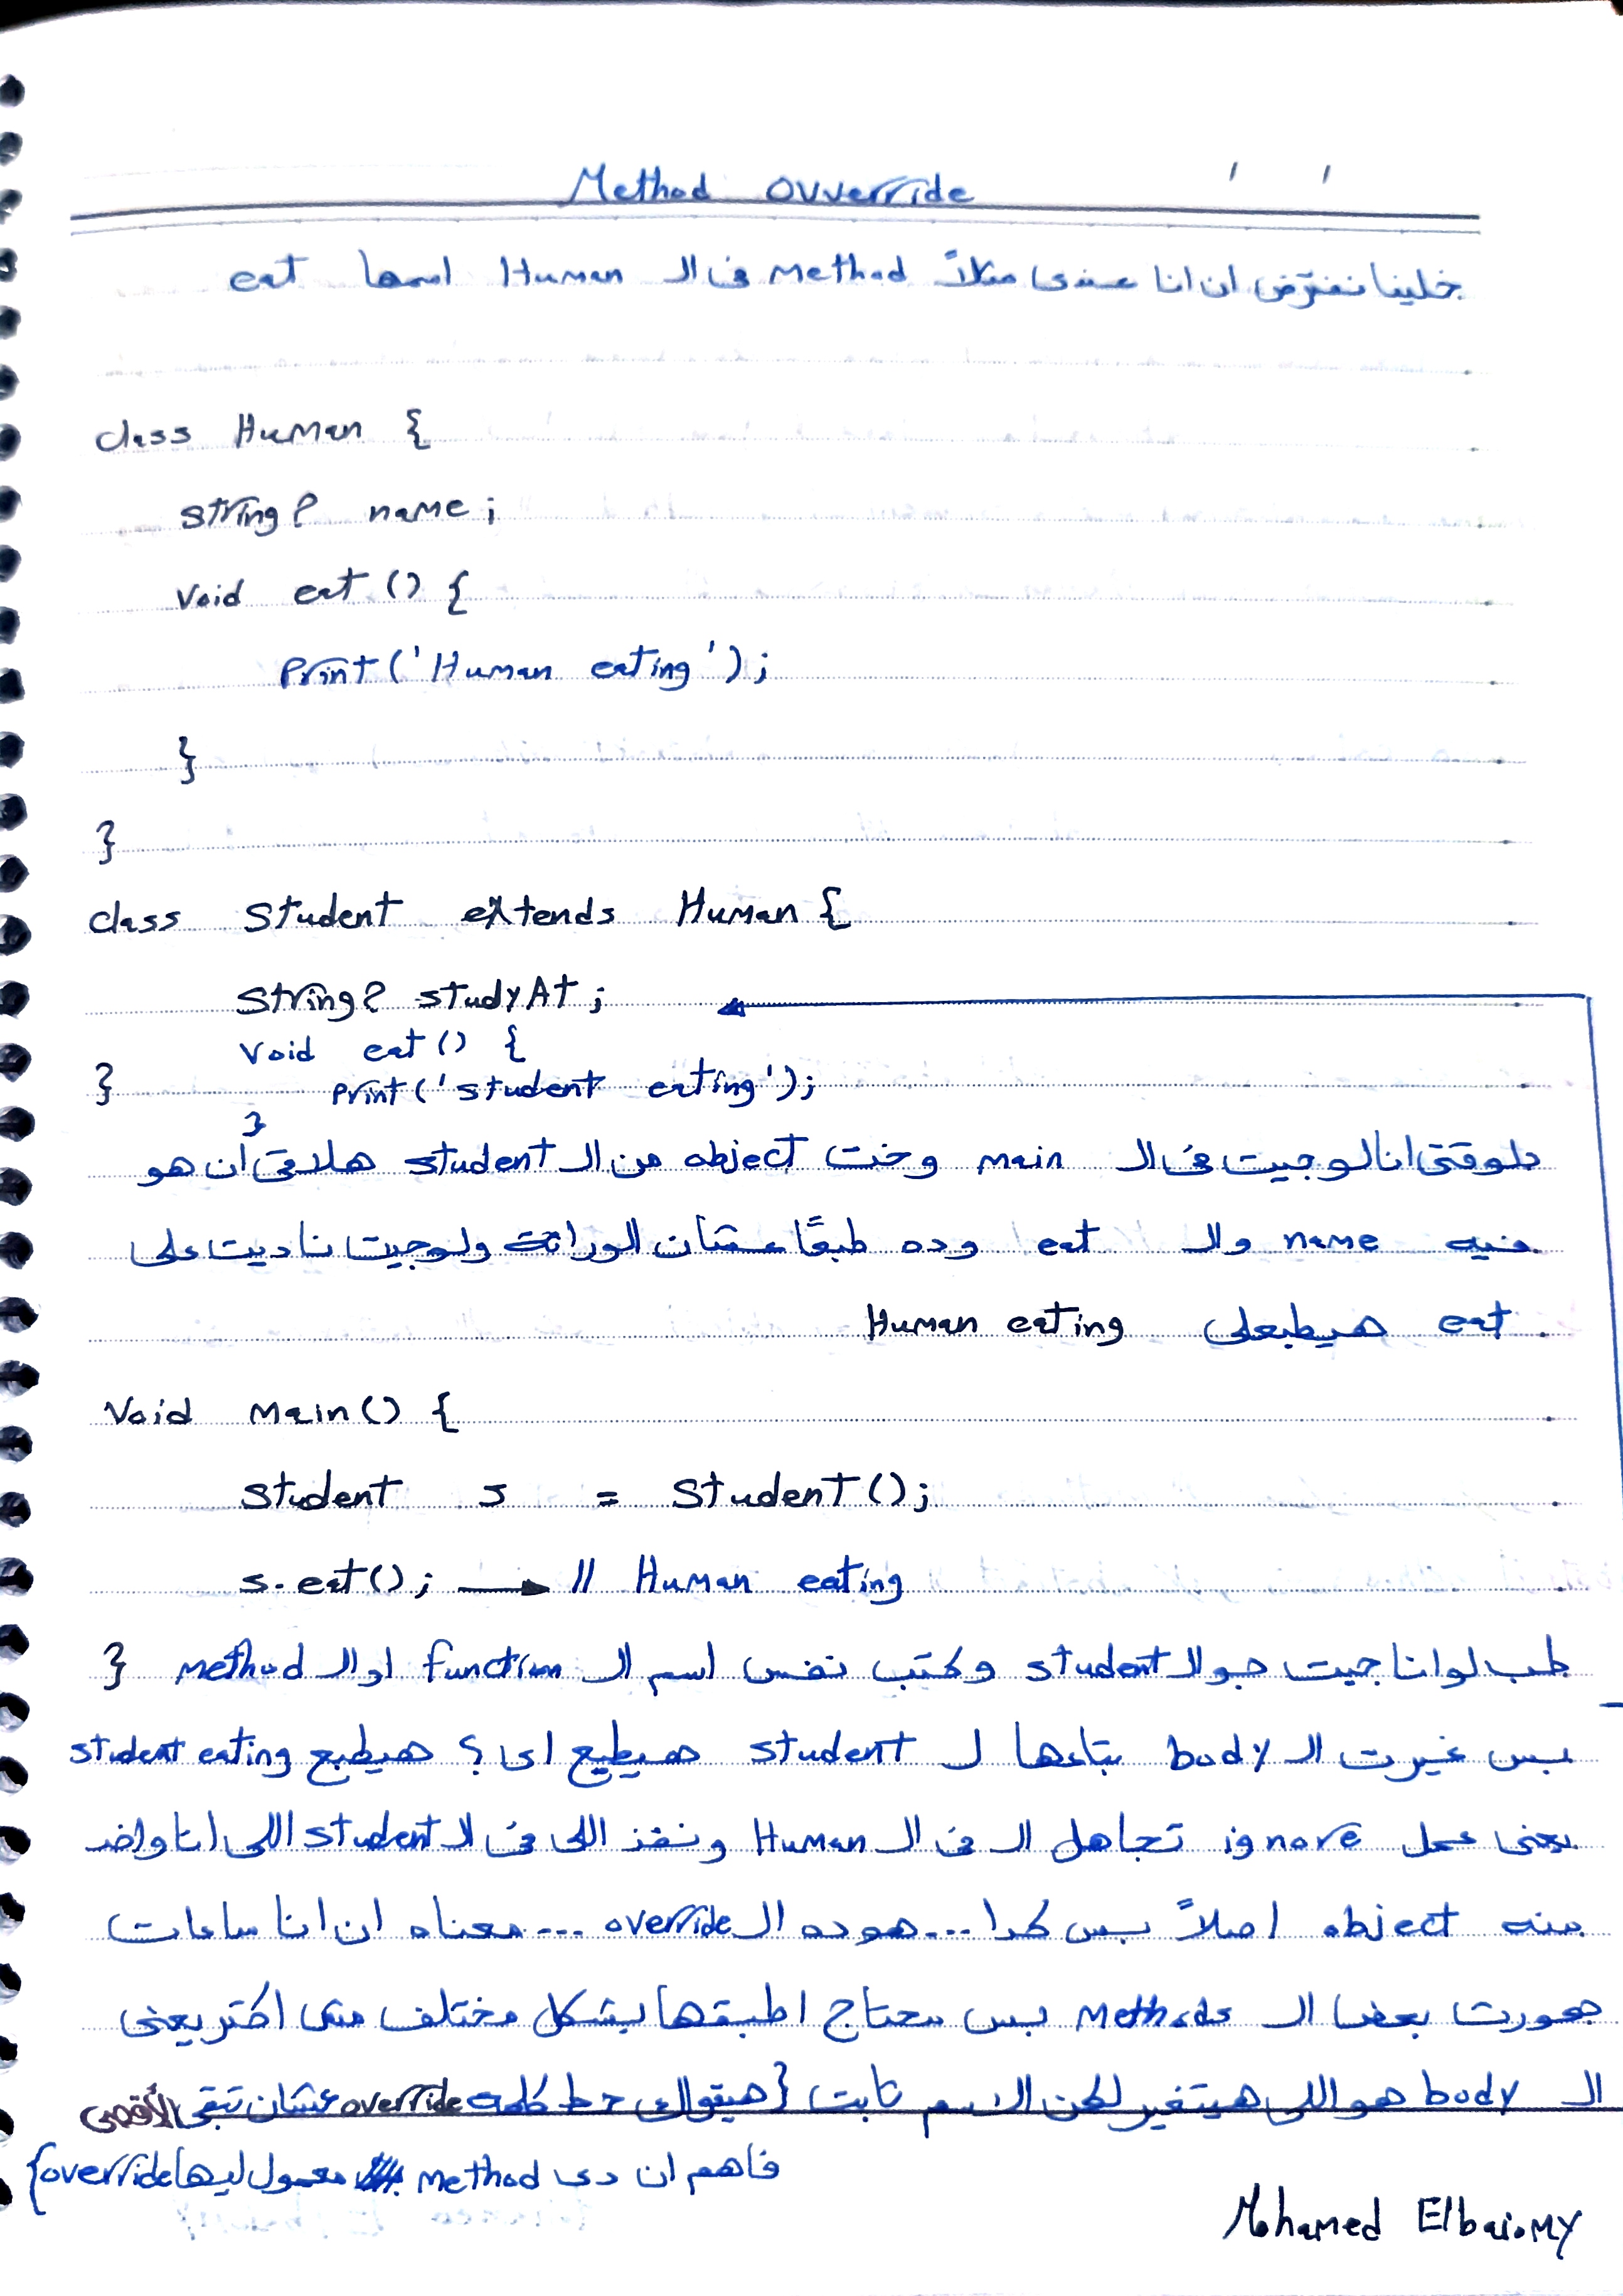 Method Ovverride
خلينا نفترض ان انا عندى مثلاً method فى الـ Human اسمها eat
class Human {
string? name;
void eat () {
print('Human eating');
}
}
class Student extends Human {
String? studyAt;
void eat () {
print('student eating');
}
}
دلوقتى انا لو جيت فى الـ main وخت object من الـ student هلاقى ان هو
فيه name والـ eat وده طبعًا عشان الوراثة ولو جيت ناديت على
eat هيطبعلى Human eating
void main() {
student s = Student();
s.eat(); → // Human eating
طب لو انا جيت جوا الـ student وكتب نفس اسم الـ function او الـ method }
بس غيرت الـ body بتاعها لـ student هيطبع اى ؟ هيطبع student eating
يعنى عمل ignore تجاهل الـ فى الـ Human ونفذ اللى فى الـ student اللى انا واخد
منه object اصلاً بس كدا ... هو ده الـ override ... معناه ان انا ساعات
بعض الـ Methods بس محتاج اطبقها بشكل مختلف مش اكتر يعنى
الـ body هو اللى هيتغير لكن الاسم ثابت {هيقولك حط كلمة override عشان تبقى
فاهم ان دى method معمول ليها override}
Mohamed Elbaiomy